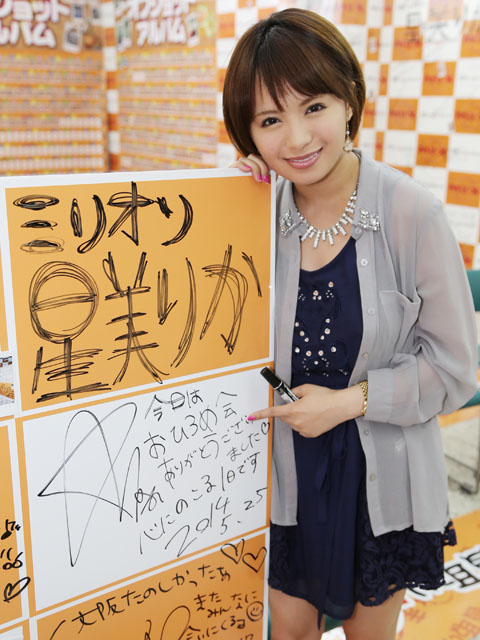 ョット
バム
オリショット
アルバム
ミリオリ
星美りか
今日は
おひろめ会
ありがとうござい
ました♡
心にのこる1日です
2014
5.25
大阪たのしかったぁ
また
みんなに
会いにくる